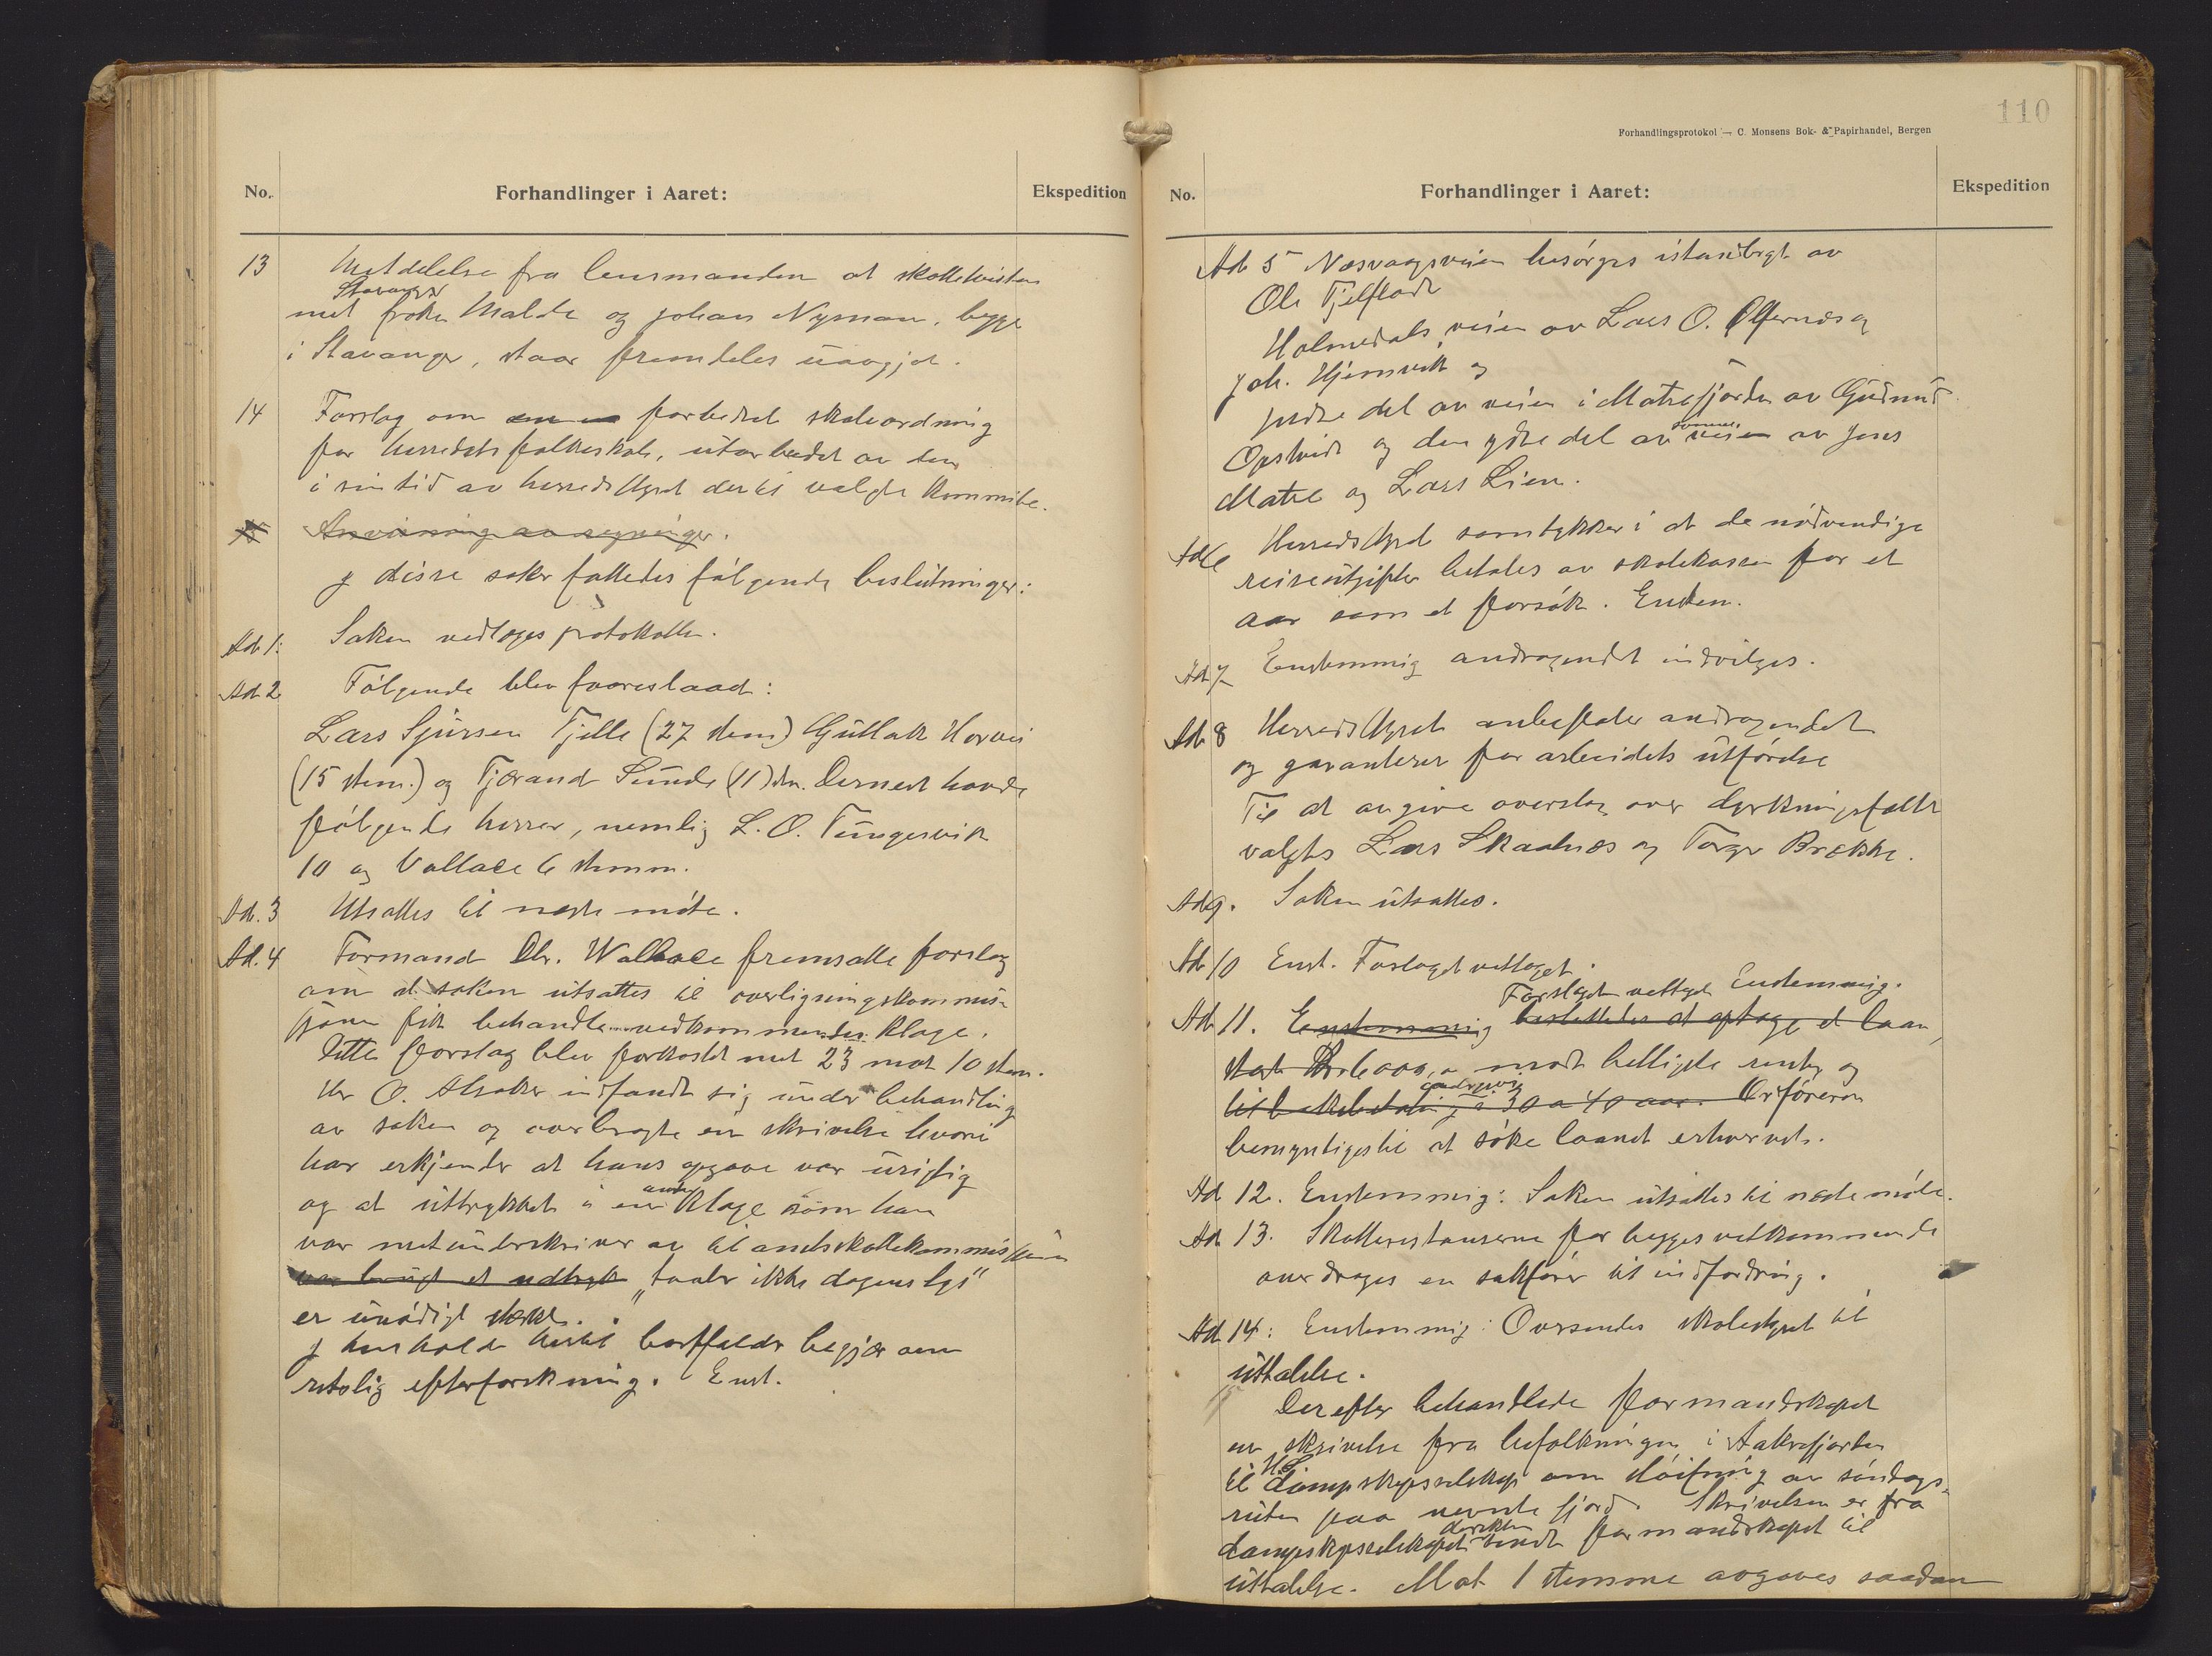 No. Forhandlinger i Aaret: Ekspedition
13 Meddelelse fra lensmanden at skattetvisten
Stavanger
med frøken Malde og Johan Nyman, begge
i Stavanger, staar fremdeles uavgjort.
14 Forslag om forbedret skoleordning
for herredets folkeskole, utarbeidet av den
i sin tid av herredstyret dertil valgte kommite.
15 Anvisning av regninger.
J disse saker fattedes følgende beslutninger:
Ad 1: Saken vedlægges protokollen.
Ad 2 Følgende blev foreslaaet:
Lars Sjursen Fjelle (27 stem) Gullak Horvei
(15 stem.) og Tjerand Sunde (11) stm. Dernest havde
følgende herrer, nemlig L. O. Tungesvik
10 og Vallace 6 stemm.
Ad. 3 Utsattes til næste møte.
Ad. 4 Formand Chr. Wallace fremsatte forslag
om at saken utsattes til overligningskommis-
sjonen fik behandle vedkommendes klage.
Dette forslag blev forkastet med 23 mot 10 stem.
Hr O. Alsaker indfandt sig under behandling
av saken og overbragte en skrivelse hvori
han erkjender at hans opgave var uriktig
og at uttrykket i en klage som han
anden
var medunderskriver av til amtsskattekommissionen
var brugt et udtryk „taaler ikke dagens lys“
er unødigt sterkt.
J henhold hertil bortfalder begjær om
retslig efterforskning. Enst.
110
Forhandlingsprotokol — C. Monsens Bok- & Papirhandel, Bergen
No. Forhandlinger i Aaret: Ekspedition
Ad 5 Næsvaagsveien besørges istandbragt av
Ole Fjelflaat
Holmedalsveien av Lars O. Ølfernes og
Joh. Hjemvik og
indre del av veien i Matrefjorden av Gudmund
Opstveit og den ydre del av veien av Jens
samme
Matre og Lars Lien.
Ad 6 Herredstyret samtykker i at de nødvendige
reiseutgifter betales av skolekassen for et
aar som et forsøk. Enstem.
Ad 7 Enstemmig andragendet indvilges.
Ad 8 Herredstyret anbefaler andragendet
og garanterer for arbeidets utførelse
Til at avgive overslag over dyrkningsfeltet
valgtes Lars Skaalnes og Torger Brekke.
Ad 9. Saken utsattes.
Ad 10 Enst. Forslaget vedtaget.
Forslaget vedtaget Enstemmig.
Ad 11. Enstemmig besluttedes at optage et laan,
stort Kr. 6000,- mot billigste rente og
andragende
tilbakebetaling à 30 a 40 aar. Ordføreren
bemyndiges til at søke laanet erhvervet.
Ad 12. Enstemmig: Saken utsattes til næste møte.
Ad 13. Skatterestanserne for begges vedkommende
overdrages en sakfører til indfordring.
Ad 14: Enstemmig: Oversendes skolestyret til
uttalelse.
Derefter behandlede formandskapet
en skrivelse fra befolkningen i Aakrefjorden
til H.S. Dampskipsselskap om sløifning av søndags-
ruten paa nevnte fjord. Skrivelsen er fra
direktør
dampskipsselskapet sendt formandskapet til
uttalelse. Mot 1 stemme avgaves saadan